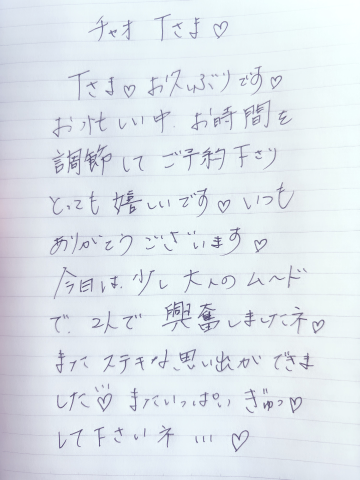 チャオ Tさま♡
Tさま♡お久ぶりです♡
お忙しい中、お時間を
調節して ご予約下さり
とっても嬉しいです♡いつも
ありがとうございます♡
今日は、少し大人のムード
で、2人で 興奮しましたネ♡
また ステキな思い出ができま
した♡ またいっぱい ぎゅっ♡
して下さいネ…♡